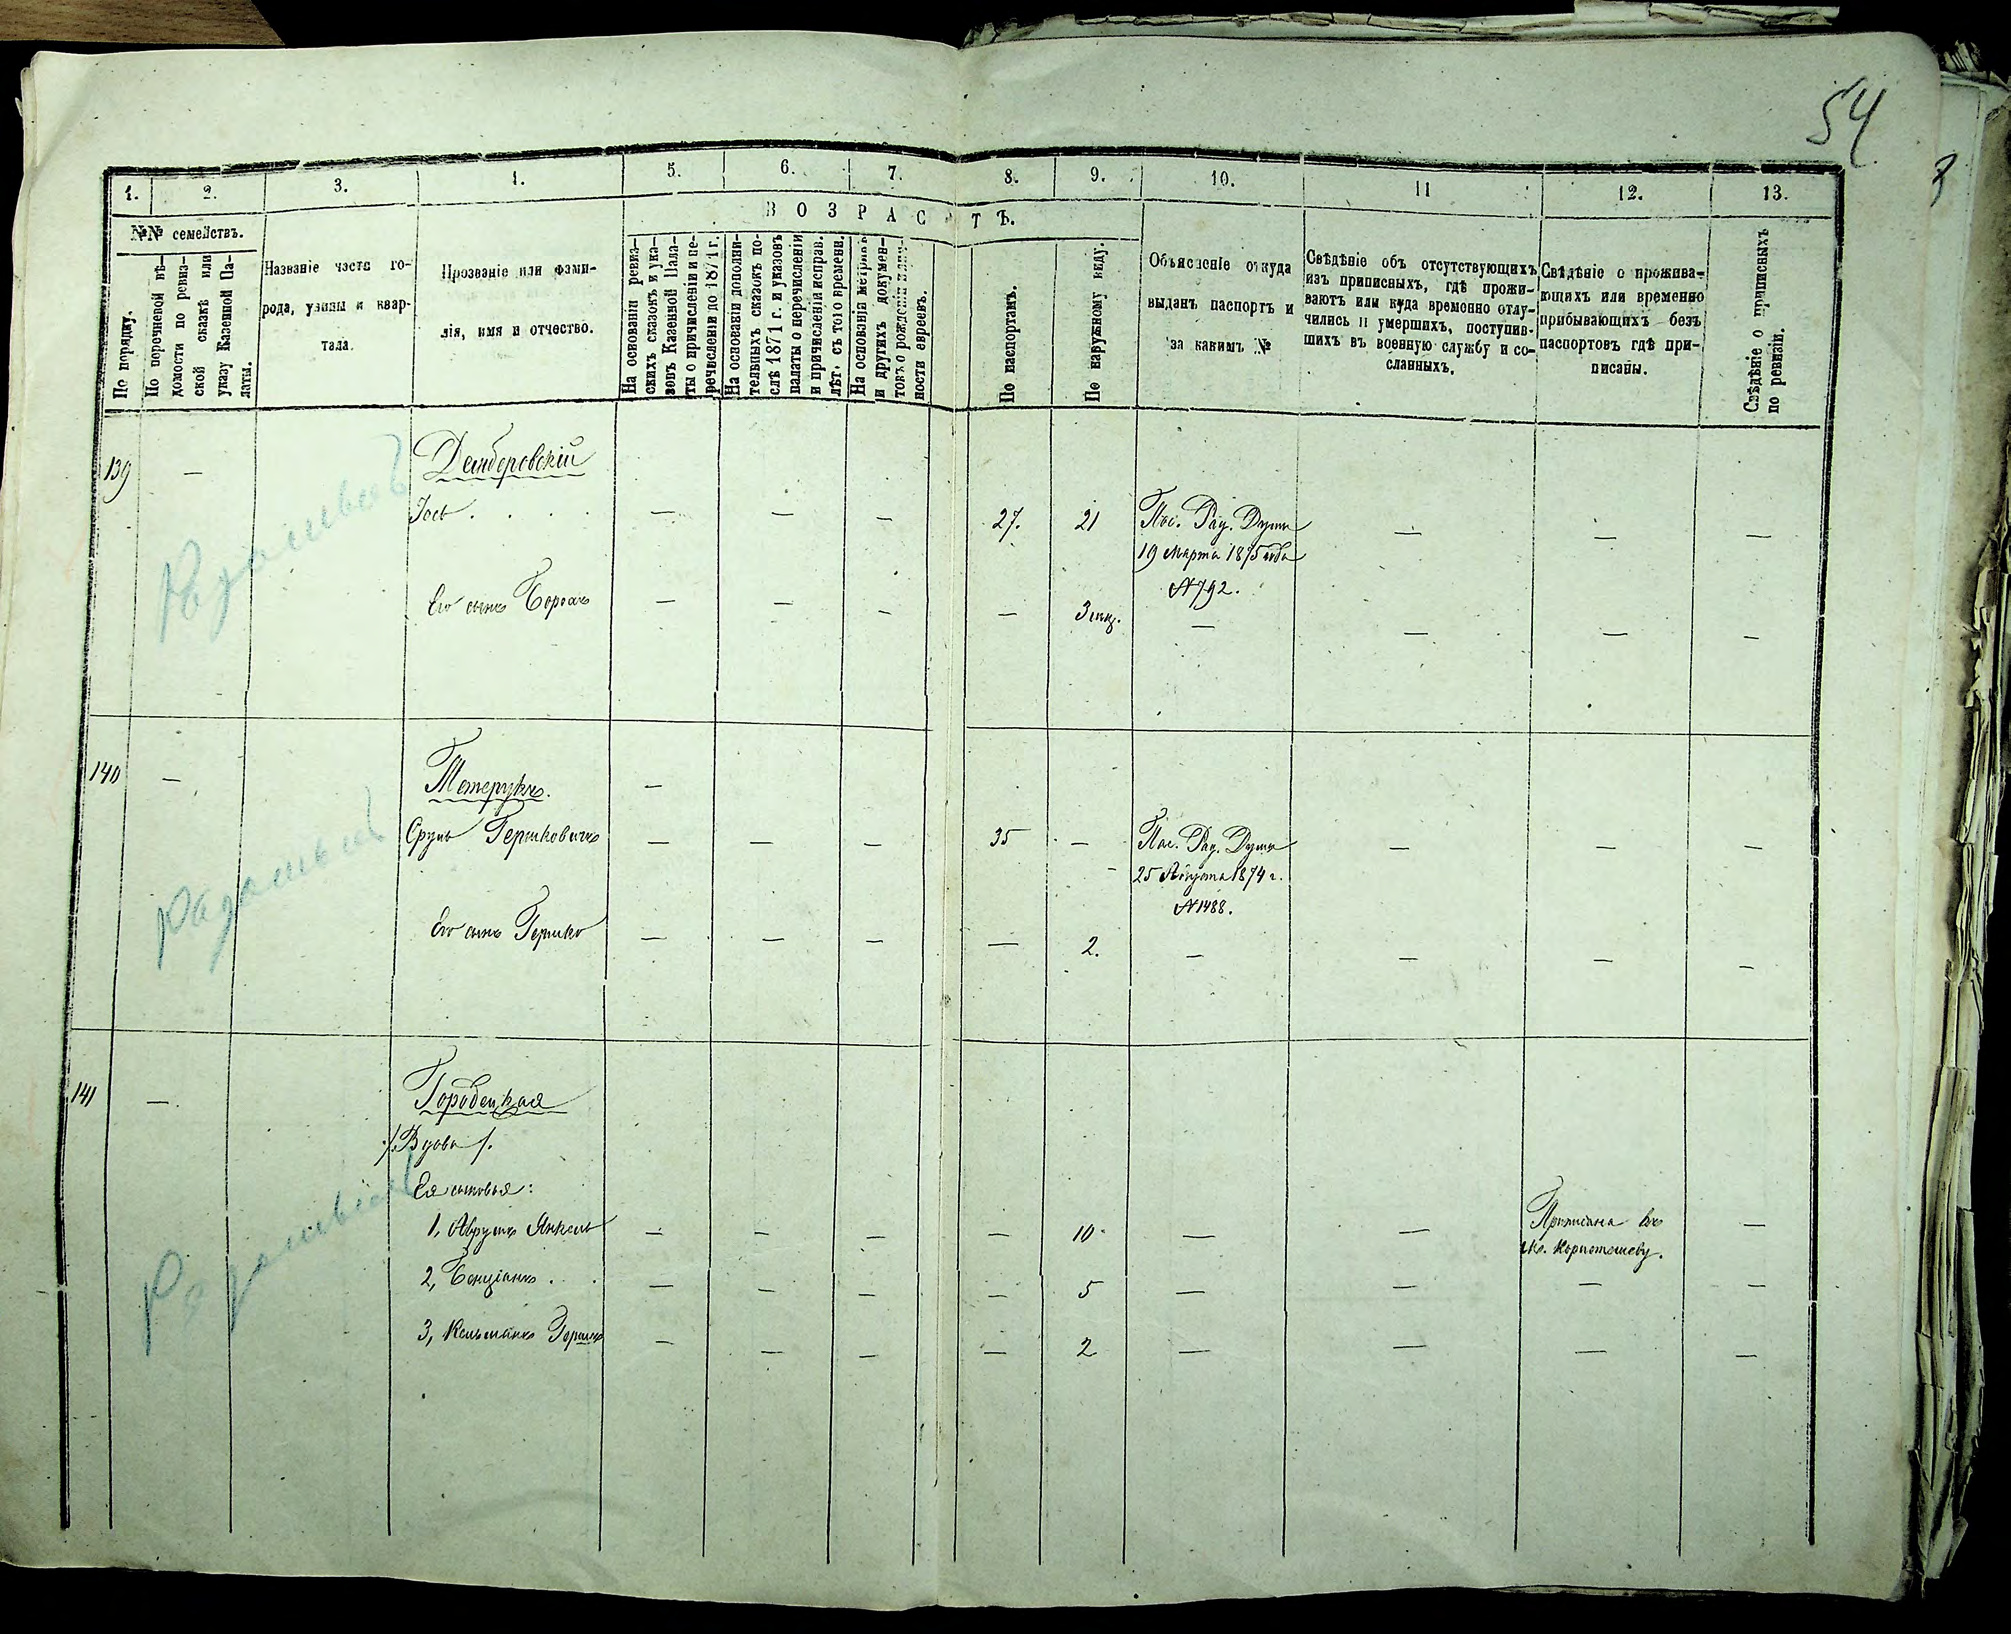 54
1.
2.
3.
4.
5.
6.
7.
8.
9.
10.
11
12.
13.
№№ семействъ.
По порядку.
По перечневой вѣ-
домости по ревиз-
ской сказкѣ или
указу Казенной Па-
латы.
Названіе части го-
рода, улицы и квар-
тала.
Прозваніе или фами-
лія, имя и отчество.
ВОЗРАСТЪ.
На основаніи ревиз-
скихъ сказокъ и ука-
зовъ Казенной Пала-
ты о причисленіи и пе-
речисленіи до 1871 г.
На основаніи дополни-
тельныхъ сказокъ по-
слѣ 1871 г. и указовъ
палаты о перечисленіи
и причисленіи исправ.
лѣт. съ того времени.
На основаніи метрикъ
и другихъ докумен-
товъ о рожденіи
ности евреевъ.
По паспортамъ.
По наружному виду.
Объясненіе откуда
выданъ паспортъ и
за какимъ №
Свѣдѣніе объ отсутствующихъ
изъ приписныхъ, гдѣ прожи-
ваютъ или куда временно отлу-
чились и умершихъ, поступив-
шихъ въ военную службу и со-
сланныхъ.
Свѣдѣніе о прожива-
ющихъ или временно
прибывающихъ безъ
паспортовъ гдѣ при-
писаны.
Свѣдѣніе о приписныхъ
по ревизіи.
139 —
Іось . . . . — — — 27. 21 Пас. Рад. Думы — — —
19 Марта 1875 года
№ 792.
Его сынъ Борохъ — — — — 3 мѣц. — — — —
140 — Тетерукъ. —
Сруль Гершковичъ — — — 35 — Пас. Рад. Думы — — —
25 Августа 1874 г.
№ 1488.
Его сынъ Гершко — — — — 2. — — — —
141 — Городецкая
/.Вдова/.
Ея сыновья:
1, Аврумъ Янкель — — — — 10 — — Приписана къ —
2, Бенціанъ . . — — — — 5 — — — —
3, Кельманъ Гершъ — — — — 2 — — — —